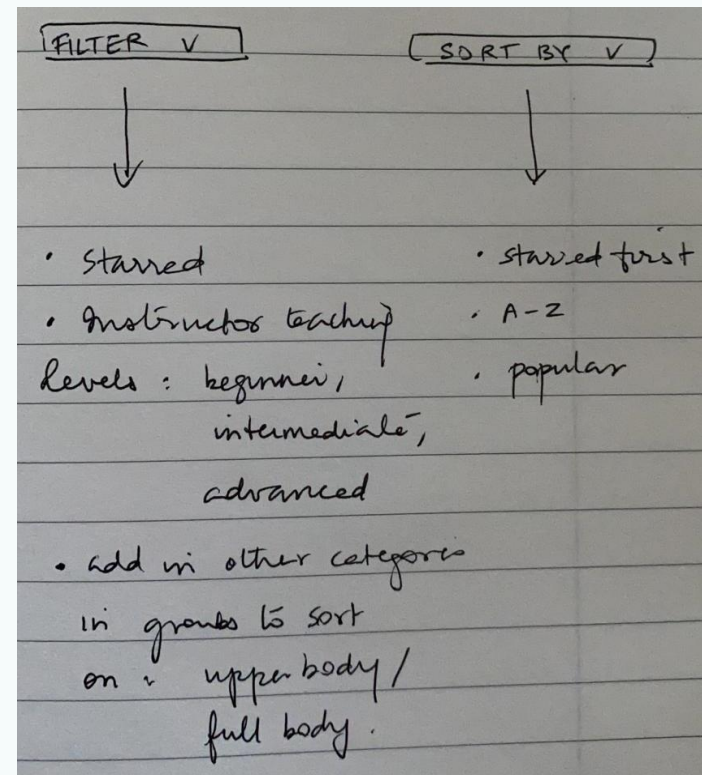 FILTER V
• Starred
• Instructor teaching
levels : beginner,
intermediate,
advanced
• add in other categories
in groups to sort
on : upper body /
full body.
SORT BY V
• starred first
• A-Z
• popular